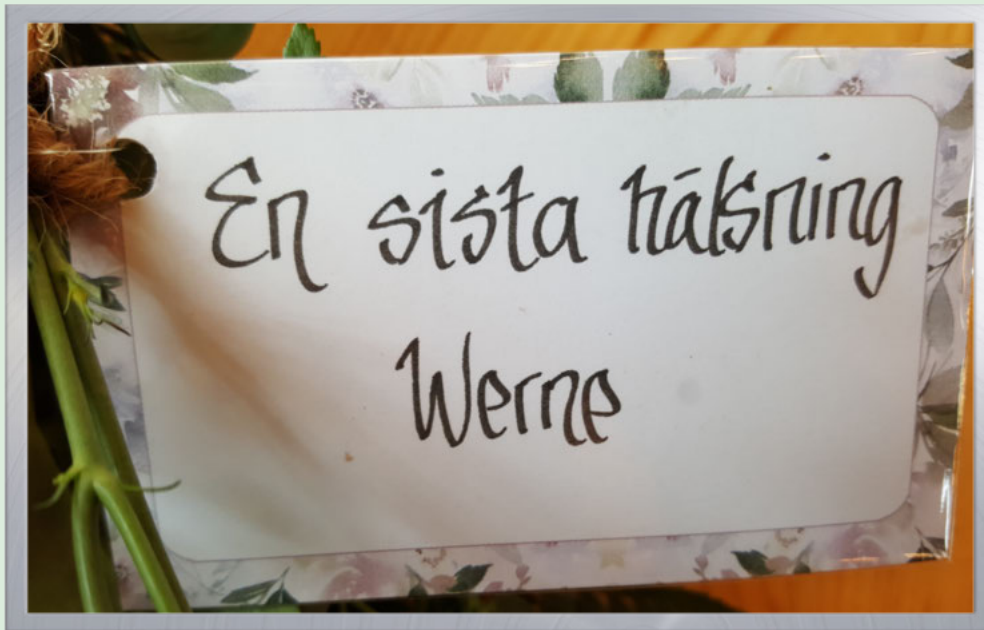 En sista hälsning
Werne